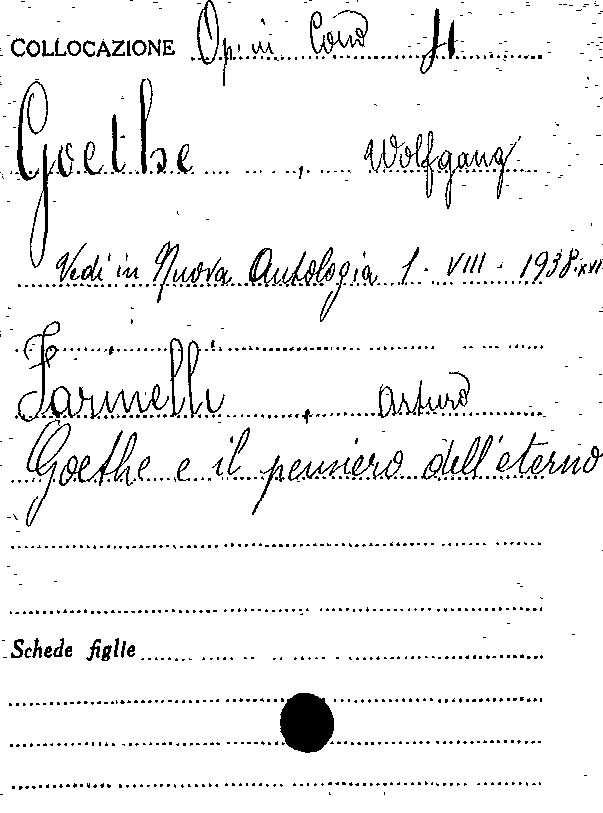 COLLOCAZIONE Op. in Cons
Goethe, Wolfgang
Vedi in Nuova Antologia 1. VIII. 1938.XVI
Farinelli, Arturo
Goethe e il pensiero dell'eterno
Schede figlie